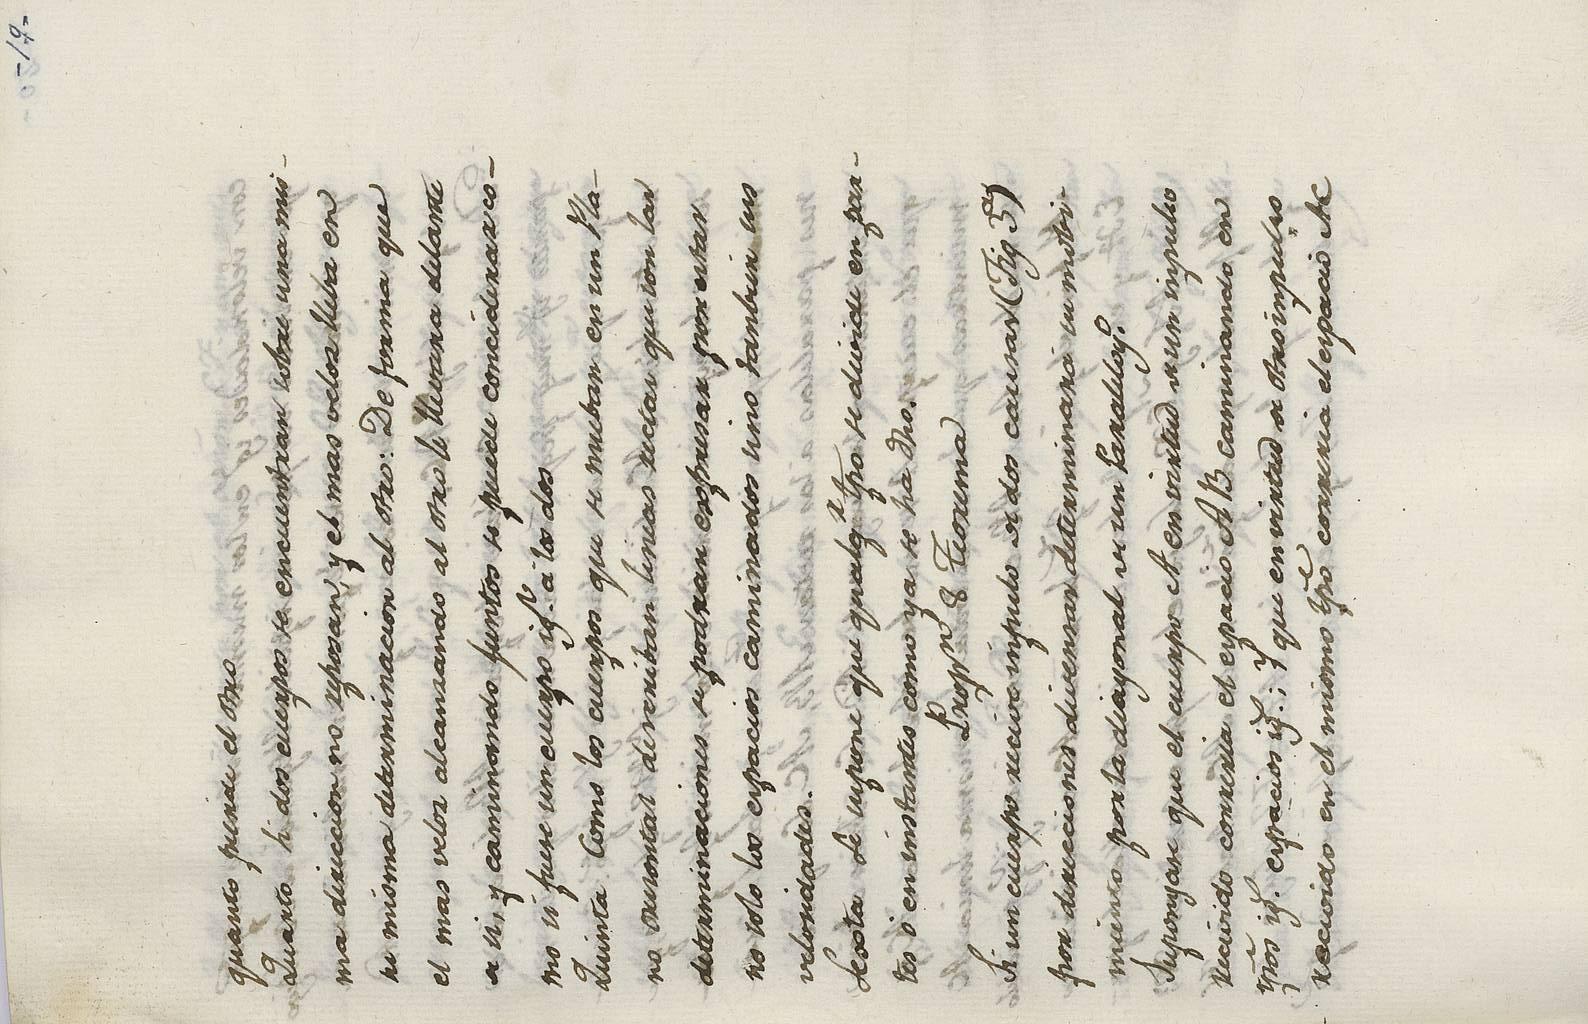 -19-
quanto pierde el otro
Quarto si dos cuerpos se encuentran sobre una mis-
ma direccion no reposan, y el mas veloz lleba en
su misma determinacion al otro: De forma que
el mas veloz alcanzando al otro le llevara delante
a si, y caminando juntos se puede conciderar co-
mo si fuere un cuerpo igl. a los dos
Quinta Como los cuerpos que se mueban en un Pla-
no orisontal describan lineas rectas que son las
determinaciones se podran expresar por estas
no solo los espacios caminados sino tambien sus
velocidades.
Sexta Se supone que qualqr. tpo se divide en par-
tes o en instantes como ya se ha dho.
Propn. 8 Teorema
Si un cuerpo recive impulso de dos causas (Fig 5a)
por direcciones diversas determinara su mobi-
miento por la diagonal de un Paralelogo.
Supongase que el cuerpo A en virtud de un impulso
recivido correria el espacio AB caminando en
tpos igs. espacios igs.; y que en virtud de otro impulso
recivido en el mismo tpo correria el espacio AC